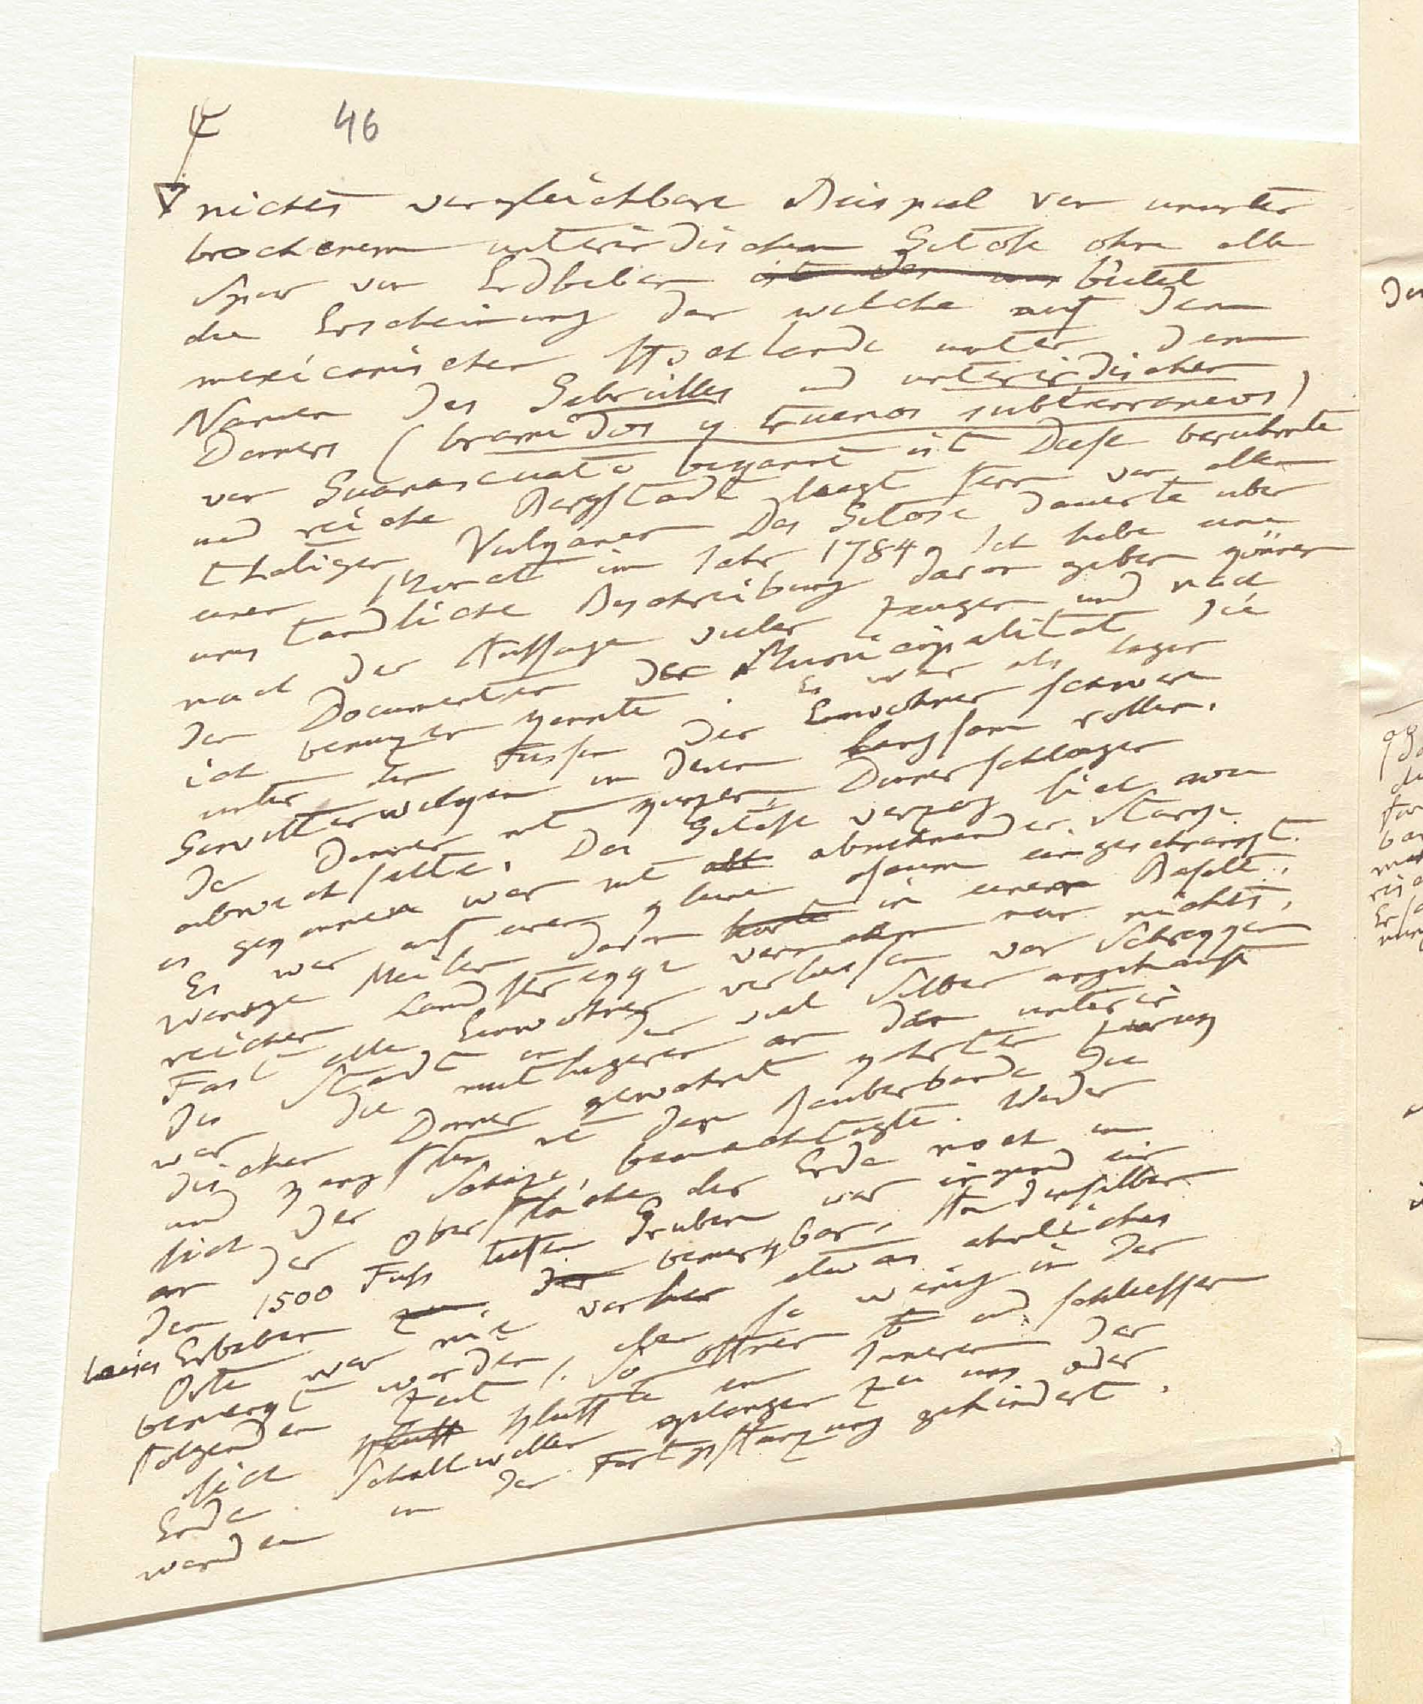 46
nichts vergleichbare Beispiel von ununter
brochenem unterirdischen Getöse ohne alle
Spur von Erdbeben bietet
die Erscheinung dar welche auf dem
mexicanischen Hochlande unter dem
Namen des Gebrülles und unterirdischen
Donners (bramidos y truenos subterraneos)
von Guanaxuato bekannt ist Diese berühmte
und reiche Bergstadt liegt fern von allen
thätigen Vulkanen Das Getöse dauerte über
einen Monat im Jahr 1784. Ich habe eine
umständliche Beschreibung davon geben können
nach der Aussage vieler Zeugen und nach
den Documenten der Municipalität die
ich benuzen konnte. Es war als lägen
unter den Füssen der Einwohner schwere
Gewitterwolken in denen langsam rollen.
der Donner mit kurzen Donnerschlägen
abwechselte. Das Getöse verzog sich wie
es gekommen war mit abnehmender Stärke.
Es war auf einen kleinen Raum eingeschränkt.
Wenige Meilen davon in einer Basalt.
reichen Landstrekke vernahm man nichts.
Fast alle Einwohner verliessen vor Schrekken
die Stadt in der viel Silber angehäuft
war die muthigeren an den unterir
dischen Donner gewöhnt kehrten zurük
und kämpften mit der Räuberbande die
sich der Schäze bemächtigte. Weder
an der Oberfläche der Erde noch in
den 1500 Fuß tiefen Gruben war irgend ein
leises Erbeben bemerkbar.
Orte war nie vorher etwas ähnliches
bemerkt worden, eben so wenig in der
folgenden Zeit. So öffnen und schliessen
sich Klüfte im Inneren der
Erde. Schallwellen gelangen zu uns oder
werden in der Fortpflanzung gehindert.